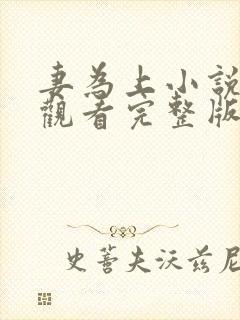 妻為上小說
觀看完整版
史蒂夫沃茲尼